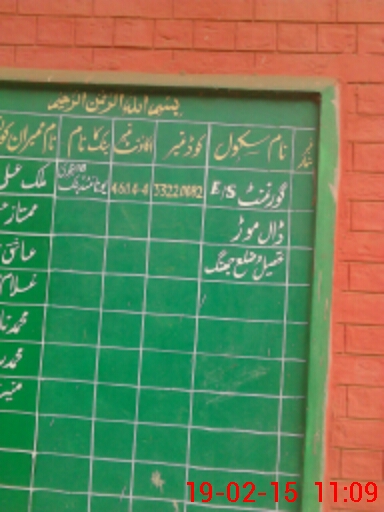 بسم اللہ الرحمٰن الرحیم
نام سکول کوڈ نمبر اکاؤنٹ نمبر بنک کا نام نام ممبران
گورنمنٹ E/S 33220082 4614-4 یونائیٹڈ بنک ملک علی
ڈال موڑ ممتاز
تحصیل و ضلع جھنگ عاشق
غلام
محمد
محمد
19-02-15 11:09